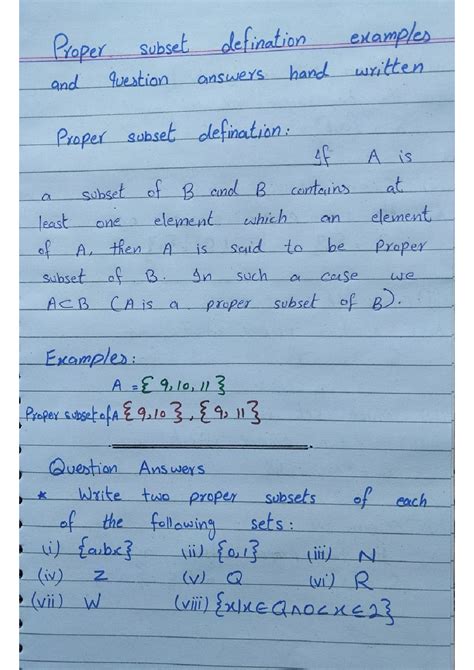 Proper subset defination examples
and question answers hand written
Proper subset defination:
If A is
a subset of B and B contains at
least one element which an element
of A, then A is said to be Proper
subset of B. In such a case we
A⊂B (A is a proper subset of B).
Examples:
A = {9,10,11}
Proper subset of A {9,10}, {9,11}
Question Answers
* Write two proper subsets of each
of the following sets:
(i) {a,b,c} (ii) {0,1} (iii) N
(iv) Z (v) Q (vi) R
(vii) W (viii) {x|x∈Q∧0<x≤2}